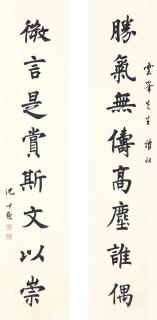 雲峯先生雅政
勝氣無儔高塵誰偶
微言是賞斯文以崇
沈尹默